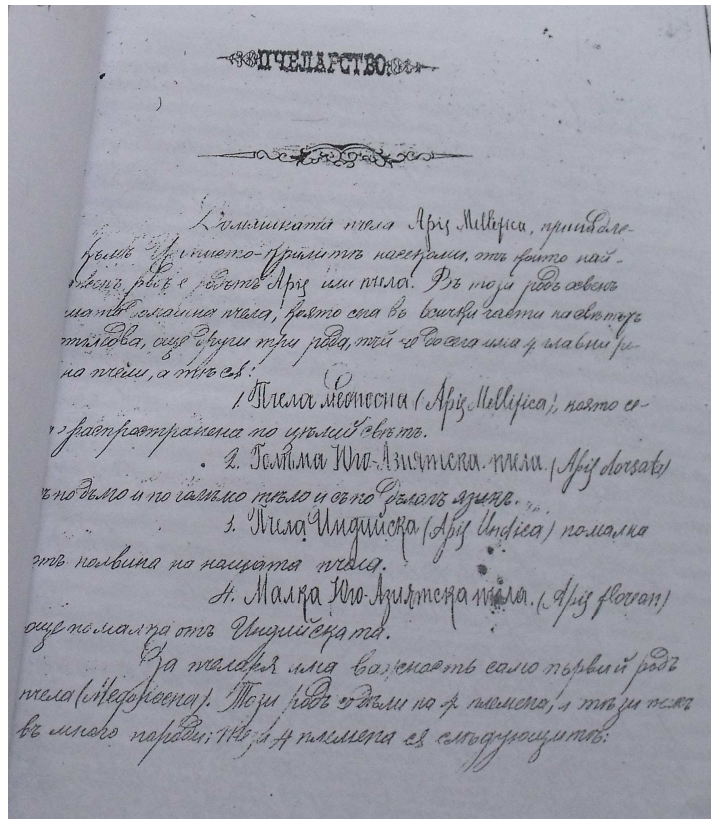 ПЧЕЛАРСТВО
Домашната пчела Apis Mellifica, принадле-
къмъ Циписто-крилитѣ насекоми, отъ които най-
родъ е родътъ Apis или пчела. Въ този родъ освенъ
домашна пчела, която спа въ всички части на свѣтътъ
още други три рода, тъй че до сега има 4 главни р-
на пчели, а тѣ ся:
1. Пчела Медоносна (Apis Mellifica), която се
распространена по цѣлий свѣтъ.
2. Голѣма Юго-Азиятска пчела. (Apis dorsata)
и по голѣмо тѣло и съ по дълагъ язикъ.
3. Пчела Индийска (Apis Indica) помалка
отъ половина на нашата пчела.
4. Малка Юго-Азиятска пчела. (Apis florean)
още помалка отъ Индийската.
За пчеларя има важность само първий родъ
пчела (Медоносна). Този родъ се дѣли на 4 племена, а тѣзи пакъ
въ много породи; тѣзи 4 племена ся слѣдующитѣ: